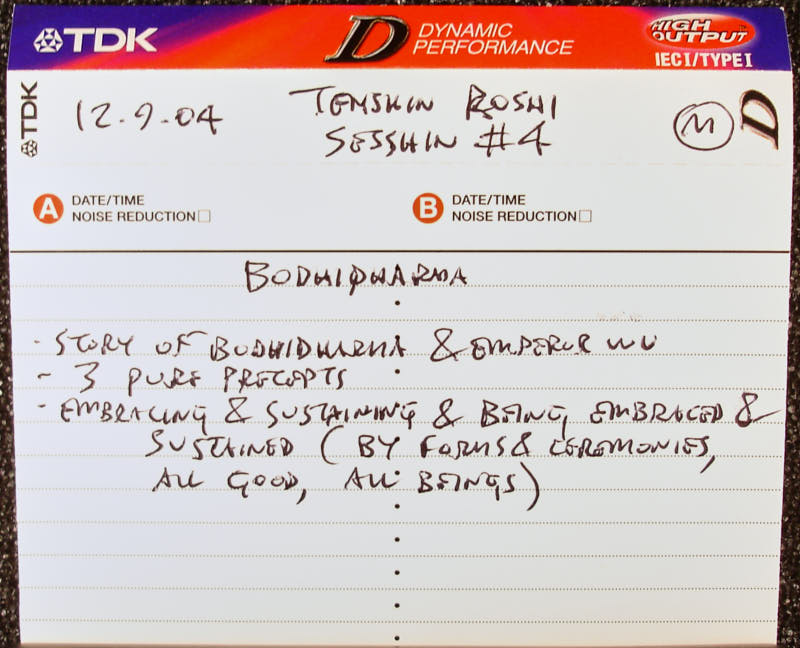 TDK D DYNAMIC PERFORMANCE HIGH OUTPUT
IEC I/TYPE I
TDK 12.9.04 TENSHIN ROSHI M D
SESSHIN #4
A DATE/TIME B DATE/TIME
NOISE REDUCTION NOISE REDUCTION
BODHIDHARMA
- STORY OF BODHIDHARMA & EMPEROR WU
- 3 PURE PRECEPTS
- EMBRACING & SUSTAINING & BEING EMBRACED &
SUSTAINED (BY FORMS & CEREMONIES,
ALL GOOD, ALL BEINGS)